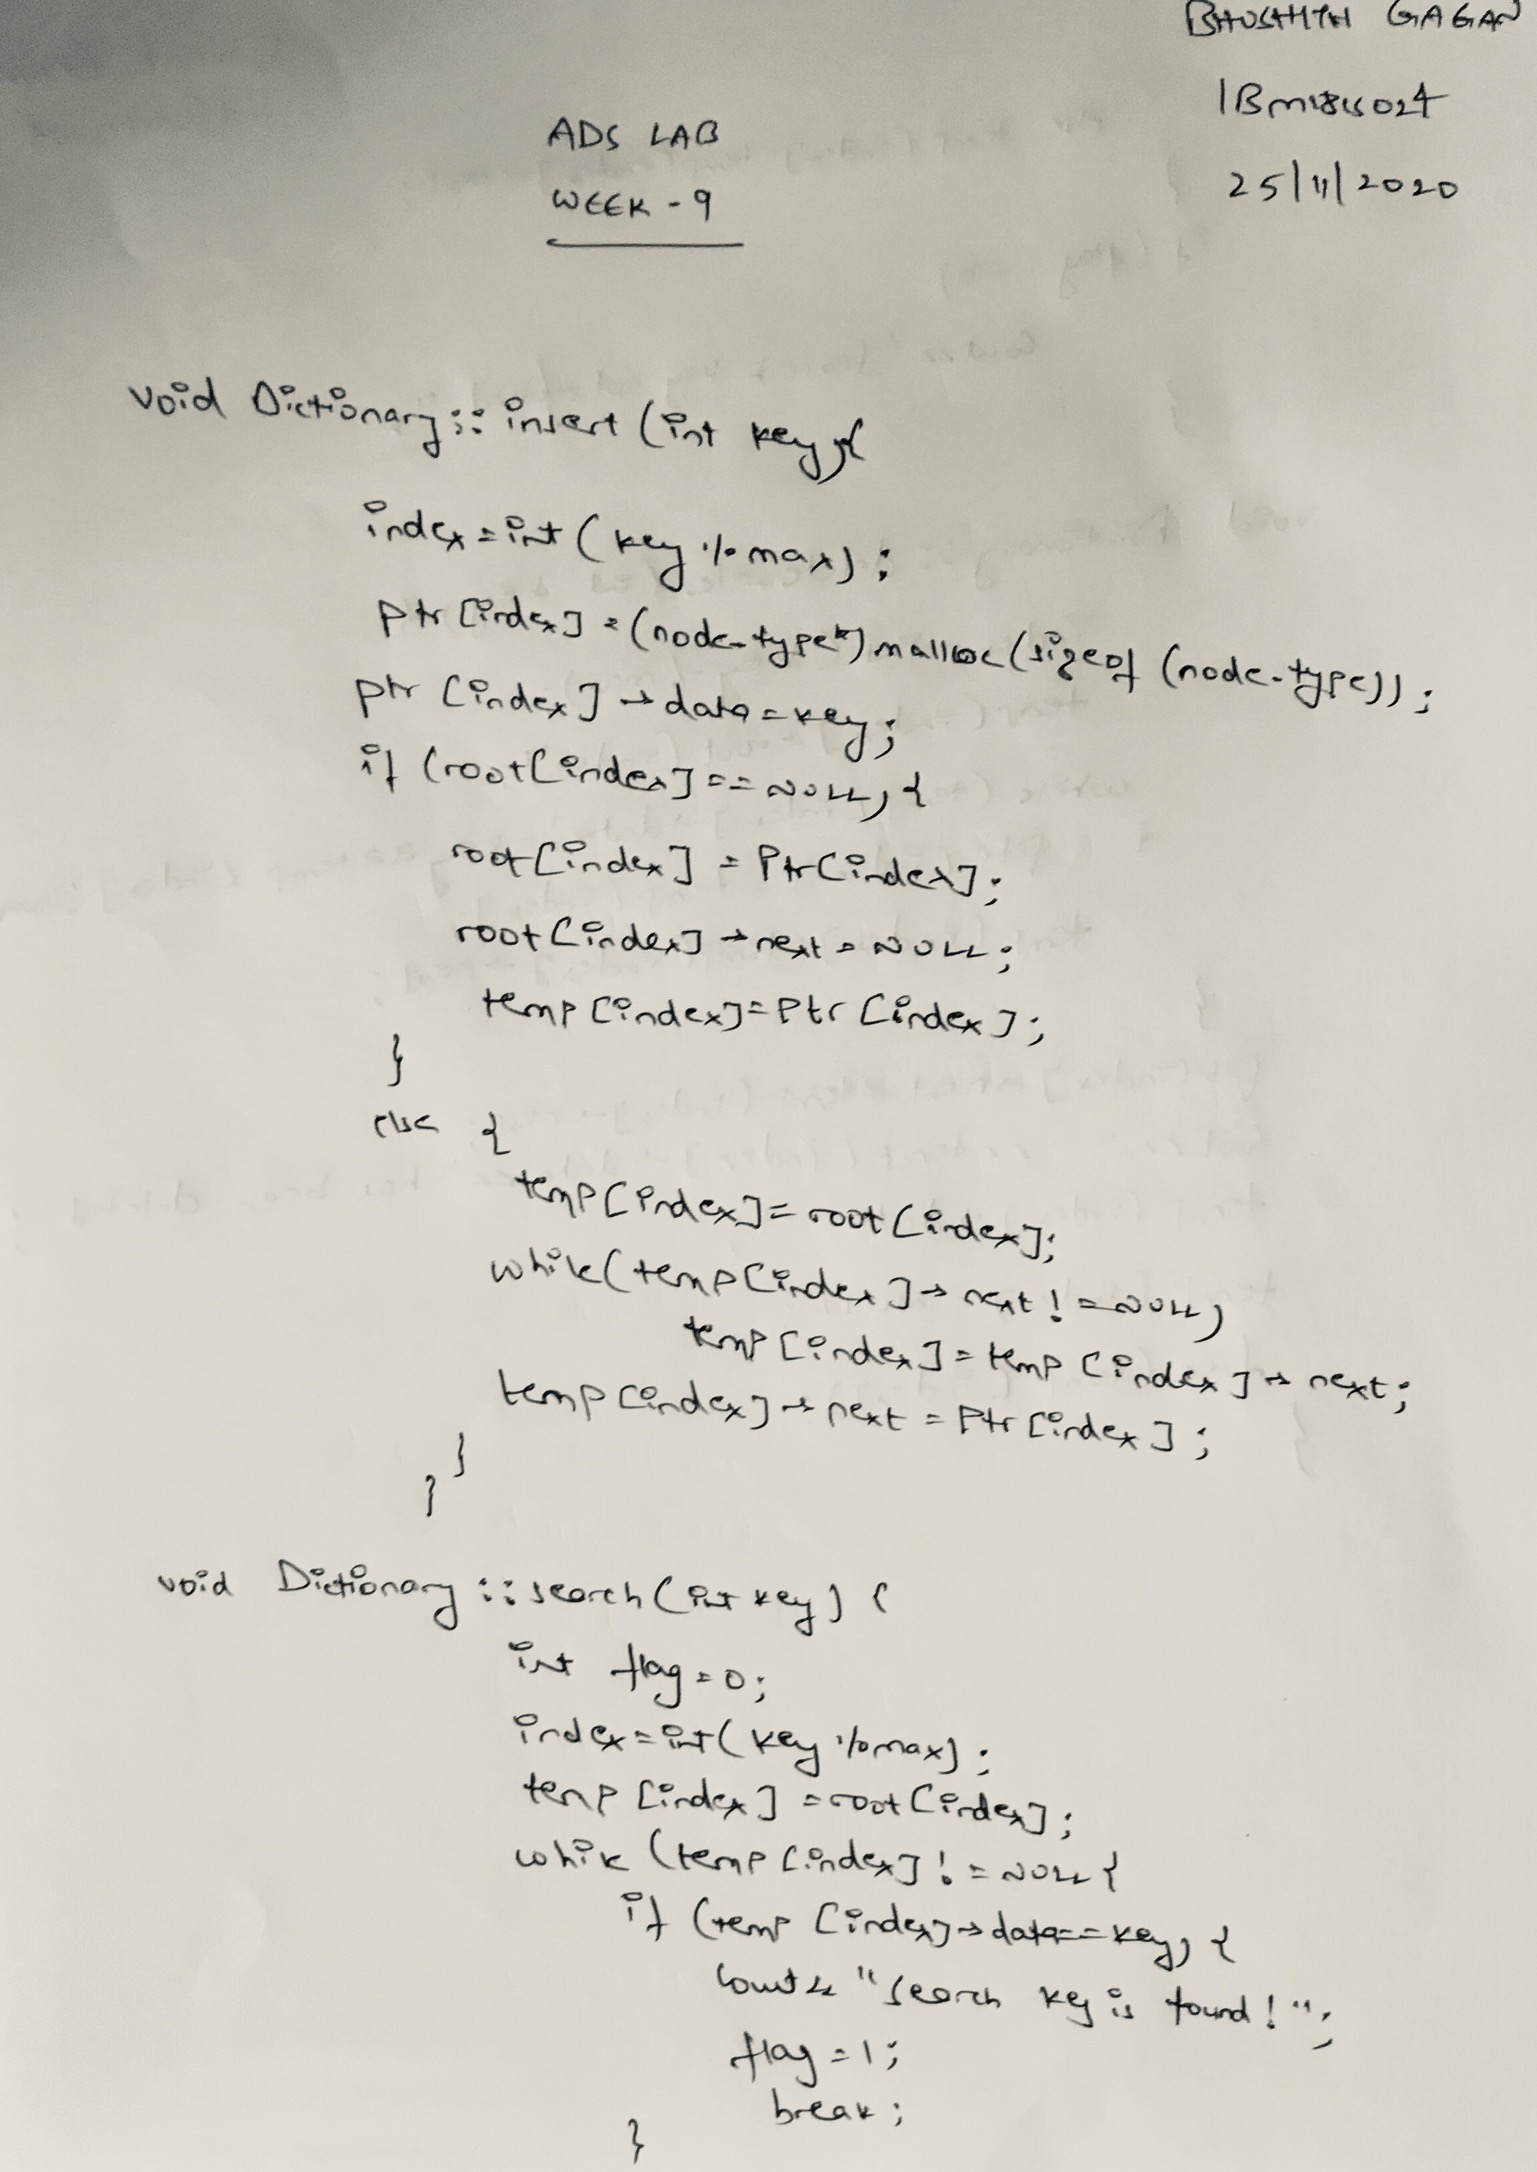 BHUSHITH GAGAN
1BM18CS024
25/11/2020
ADS LAB
WEEK - 9
void Dictionary::insert(int key){
index = int(key % max);
ptr[index] = (node-type*)malloc(sizeof(node-type));
ptr[index]→data = key;
if (root[index] == NULL) {
root[index] = Ptr[index];
root[index]→next = NULL;
temp[index] = Ptr[index];
}
else {
temp[index] = root[index];
while(temp[index]→next != NULL)
temp[index] = temp[index]→next;
temp[index]→next = Ptr[index];
}
}
void Dictionary::search(int key) {
int flag = 0;
index = int(key % max);
temp[index] = root[index];
while (temp[index] != NULL {
if (temp[index]→data == key) {
cout << "search key is found!";
flag = 1;
break;
}